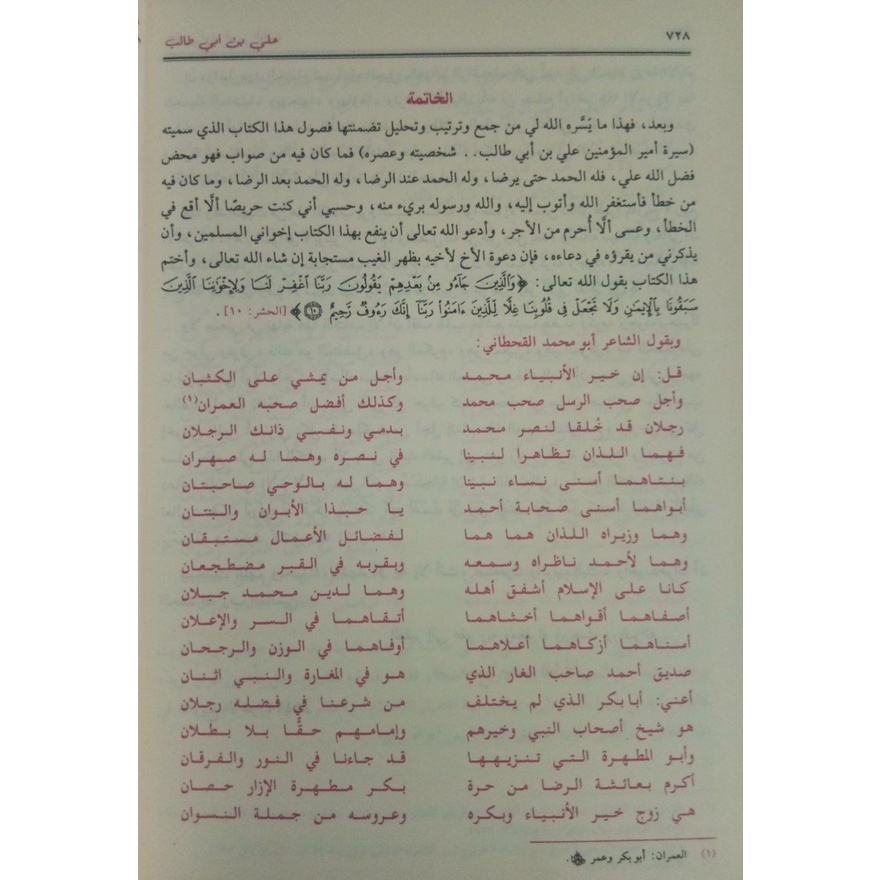 ٧٢٨
علي بن أبي طالب
الخاتمة
وبعد، فهذا ما يَسَّره الله لي من جمع وترتيب وتحليل تضمنتها فصول هذا الكتاب الذي سميته
(سيرة أمير المؤمنين علي بن أبي طالب.. شخصيته وعصره) فما كان فيه من صواب فهو محض
فضل الله علي، فله الحمد حتى يرضا، وله الحمد عند الرضا، وله الحمد بعد الرضا، وما كان فيه
من خطأ فأستغفر الله وأتوب إليه، والله ورسوله بريء منه، وحسبي أني كنت حريصًا ألَّا أقع في
الخطأ، وعسى ألَّا أُحرم من الأجر، وأدعو الله تعالى أن ينفع بهذا الكتاب إخواني المسلمين، وأن
يذكرني من يقرؤه في دعاءه، فإن دعوة الأخ لأخيه بظهر الغيب مستجابة إن شاء الله تعالى، وأختم
هذا الكتاب بقول الله تعالى: ﴿وَٱلَّذِينَ جَآءُو مِنۢ بَعۡدِهِمۡ يَقُولُونَ رَبَّنَا ٱغۡفِرۡ لَنَا وَلِإِخۡوَٰنِنَا ٱلَّذِينَ
سَبَقُونَا بِٱلۡإِيمَٰنِ وَلَا تَجۡعَلۡ فِي قُلُوبِنَا غِلّٗا لِّلَّذِينَ ءَامَنُواْ رَبَّنَآ إِنَّكَ رَءُوفٞ رَّحِيمٌ ١٠﴾ [الحشر: ١٠].
وبقول الشاعر أبو محمد القحطاني:
قل: إن خير الأنبياء محمد وأجل من يمشي على الكثبان
وأجل صحب الرسل صحب محمد وكذلك أفضل صحبه العمران(١)
رجلان قد خُلقا لنصر محمد بدمي ونفسي ذانك الرجلان
فهما اللذان تظاهرا لنبينا في نصره وهما له صهران
بنتاهما أسنى نساء نبينا وهما له بالوحي صاحبتان
أبواهما أسنى صحابة أحمد يا حبذا الأبوان والبنتان
وهما وزيراه اللذان هما هما لفضائل الأعمال مستبقان
وهما لأحمد ناظراه وسمعه وبقربه في القبر مضطجعان
كانا على الإسلام أشفق أهله وهما لدين محمد جبلان
أصفاهما أقواهما أخشاهما أتقاهما في السر والإعلان
أسناهما أزكاهما أعلاهما أوفاهما في الوزن والرجحان
صديق أحمد صاحب الغار الذي هو في المغارة والنبي اثنان
أعني: أبا بكر الذي لم يختلف من شرعنا في فضله رجلان
هو شيخ أصحاب النبي وخيرهم وإمامهم حقًّا بلا بطلان
وأبو المطهرة التي تنزيهها قد جاءنا في النور والفرقان
أكرم بعائشة الرضا من حرة بكر مطهرة الإزار حصان
هي زوج خير الأنبياء وبكره وعروسه من جملة النسوان
(١) العمران: أبو بكر وعمر .